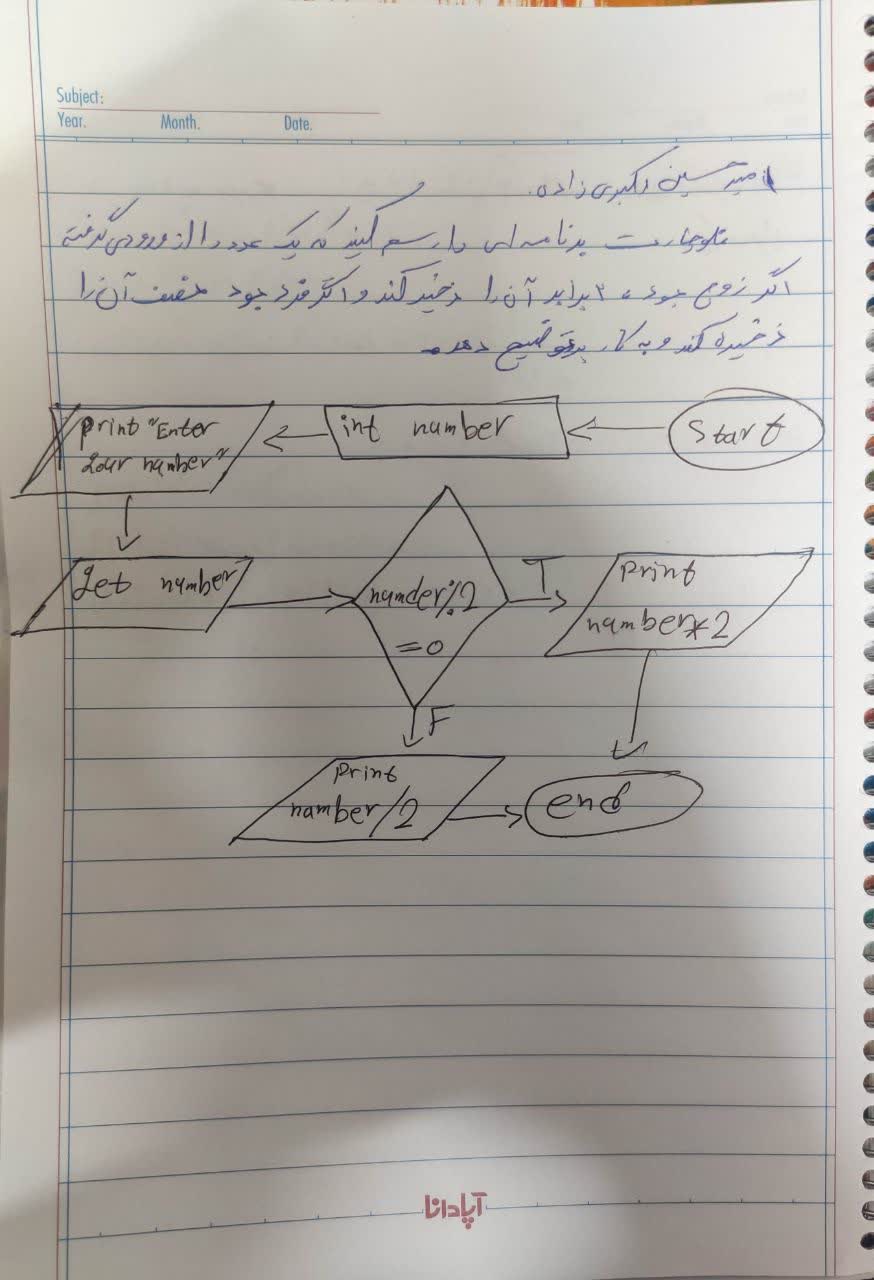 Subject:
Year. Month. Date.
امیرحسین اکبری زاده.
فلوچارت برنامه ای را رسم کنید که یک عدد را از ورودی گرفته
اگر زوج بود، ۲ برابر آن را ذخیره کند و اگر فرد بود نصف آن را
ذخیره کند و به کاربر توضیح دهد.
Start
int number
print "Enter
your number"
get number
number%2
==0
T
print
number*2
F
print
number/2
end
آپادانا